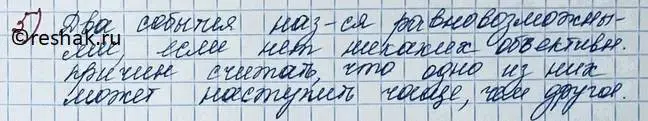 5) Два события наз-ся равновозможны-
ми, если нет никаких объективн.
причин считать, что одно из них
может наступить чаще, чем другое.